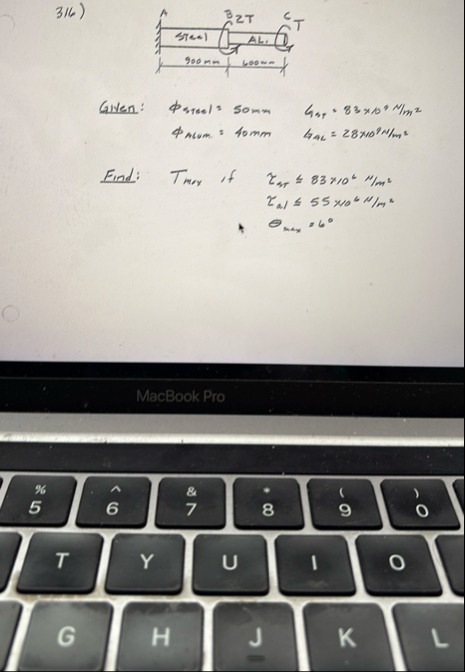 316)
A B 2T C T
Steel AL.
900mm 600mm
Given: ϕSteel = 50mm GST = 83x10⁹ N/m²
ϕAlum. = 40mm GAL = 28x10⁹ N/m²
Find: Tmax if τST ≤ 83x10⁶ N/m²
τAl ≤ 55x10⁶ N/m²
θmax = 6°
MacBook Pro
% ^ & * ( )
5 6 7 8 9 0
T Y U I O
G H J K L